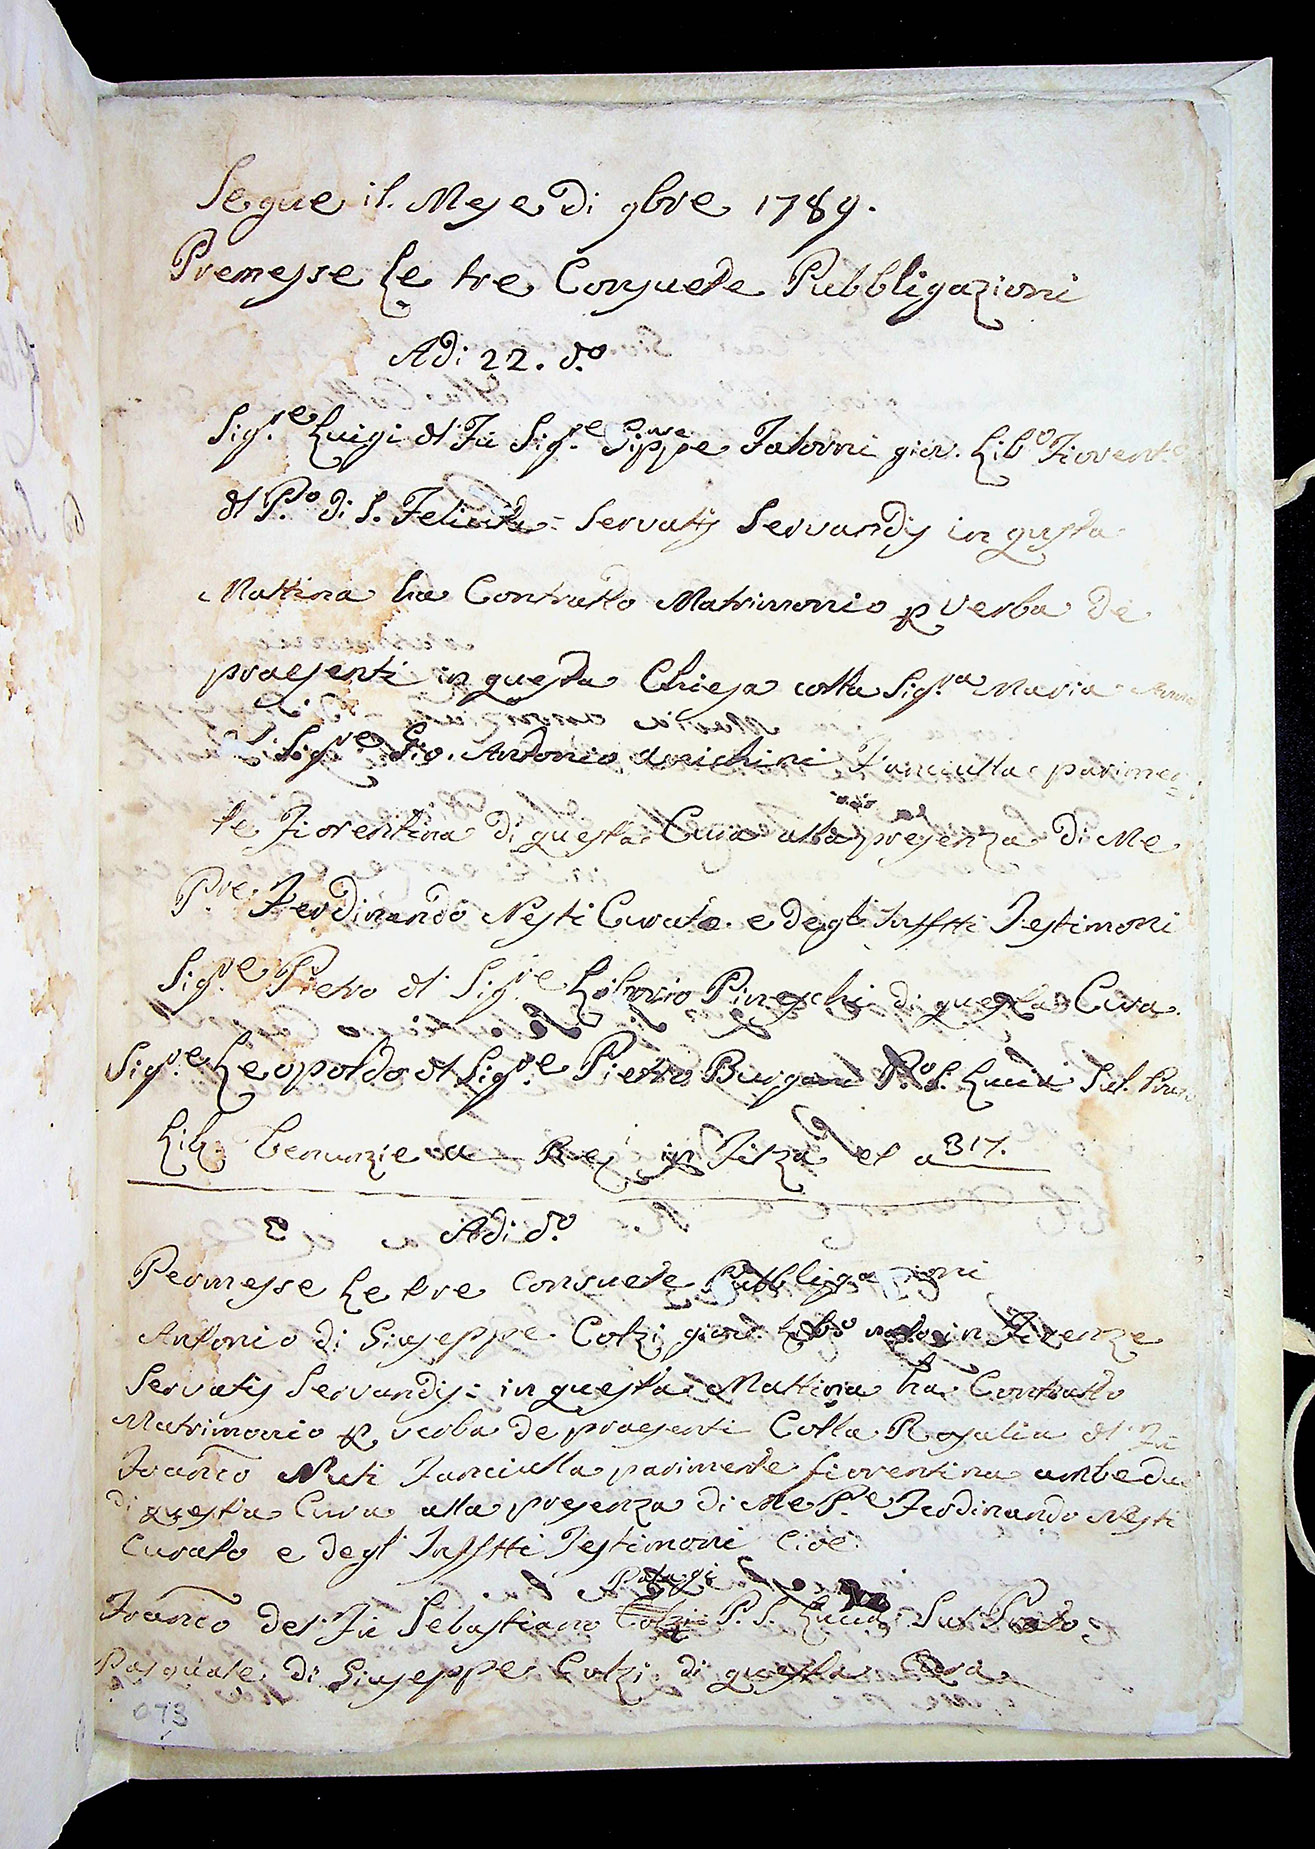 Segue il Mese di 9bre 1789.
Premesse Le tre Consuete Pubbligazioni
Adi 22. do
Sigre Luigi dl Fu Sige Gippe Fatorni giov. Libo Fiorent.
dl Po di S. Felicita = Servatis Servandis in questa
Mattina ha Contratto Matrimonio p Verba de
praesenti in questa Chiesa colla Sigra Maria Anna
Sigre Gio. Antonio Fanciulla parimen
te Fiorentina di questa Cura alla presenza di Me
Pre Ferdinando Nesti Curato e degl' Inffti Testimoni
Sigre Pietro dl Sigre Liborio Pineschi di questa Cura
Sigre Leopoldo dl Sigre Pietro Po S. Lucia Sul Prato
Lib. Denunzie a Rej in Filza al a 317.
Adi do
Permesse Le tre Consuete Pubbligazioni
Antonio di Giuseppe Colzi giov. Libo nato in Firenze
Servatis Servandis: in questa Mattina ha Contratto
Matrimonio p verba de praesenti Colla Rosalia dl Fu
Franco Nuti Fanciulla parimente fiorentina ambedue
di questa Cura alla presenza di Me Pe Ferdinando Nesti
Curato e degl' Inffti Testimoni Cioè
Franco del Fu Sebastiano Colzi P. S. Lucia Sul Prato
Pasquale di Giuseppe Colzi di questa Cura
073